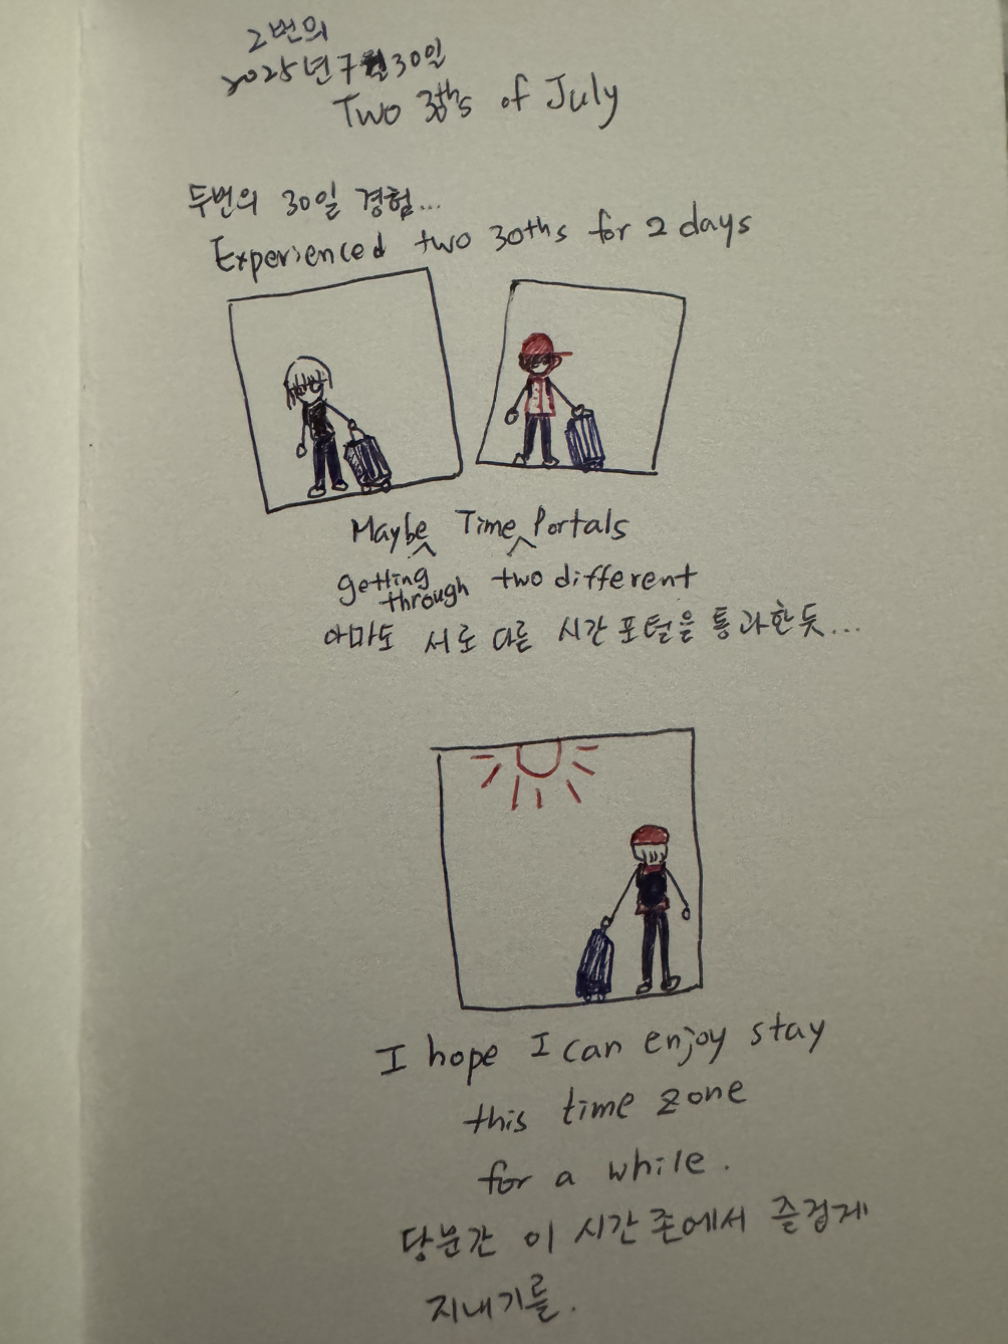 2번의
2025년 7월 30일
Two 30ths of July
두번의 30일 경험...
Experienced two 30ths for 2 days
Maybe Time Portals
getting through two different
아마도 서로 다른 시간 포털을 통과한듯...
I hope I can enjoy stay
this time zone
for a while.
당분간 이 시간존에서 즐겁게
지내기를.